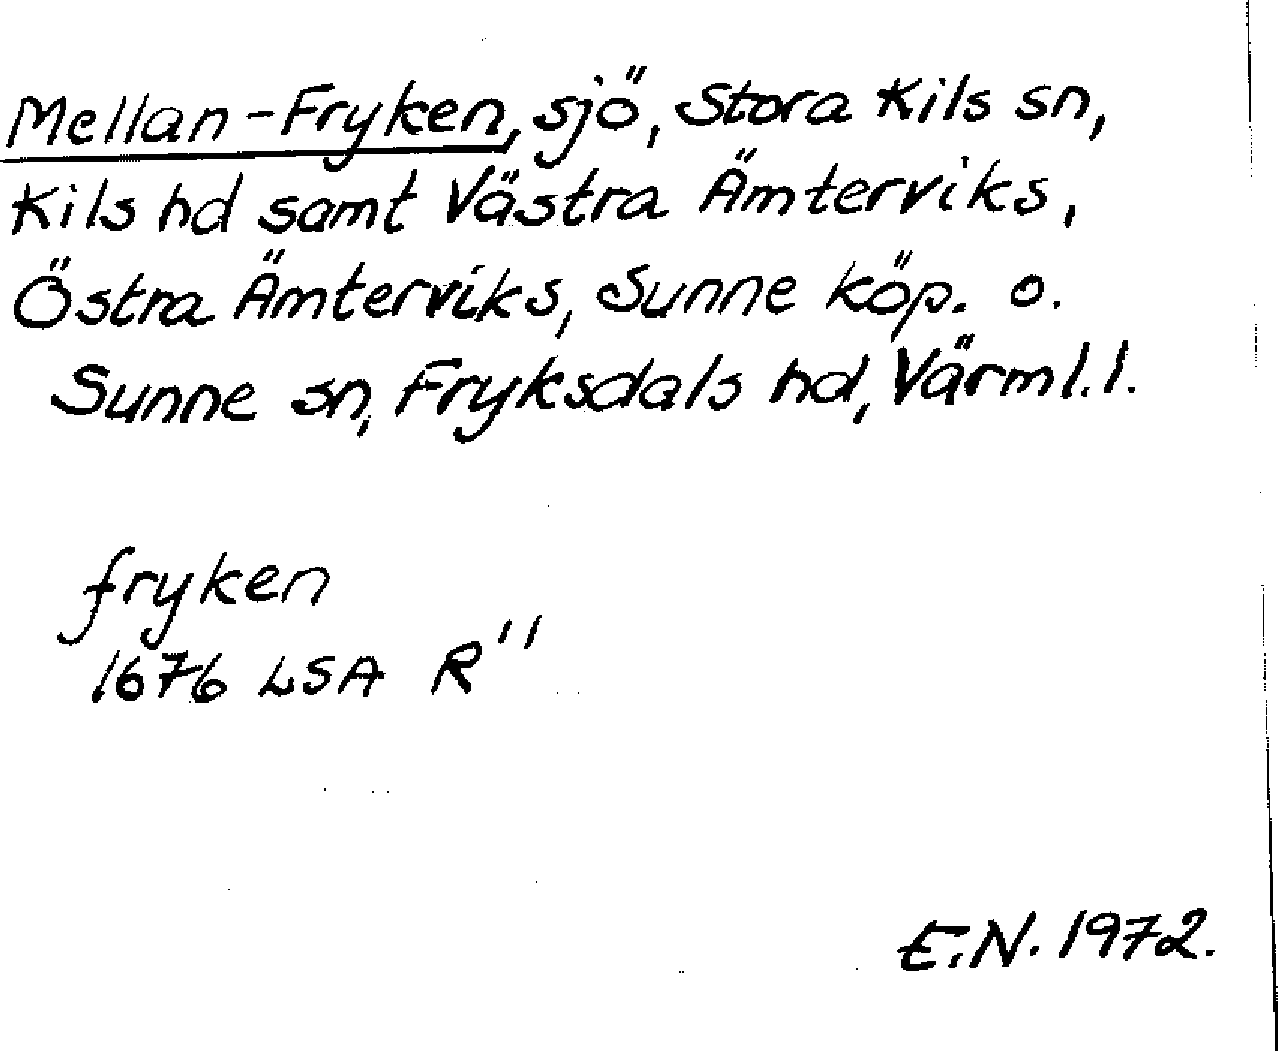 Mellan-Fryken, sjö, Stora Kils sn,
Kils hd samt Västra Ämterviks,
Östra Ämterviks, Sunne köp. o.
Sunne sn, Fryksdals hd, Värml. l.
fryken
1676 LSA R''
E.N. 1972.